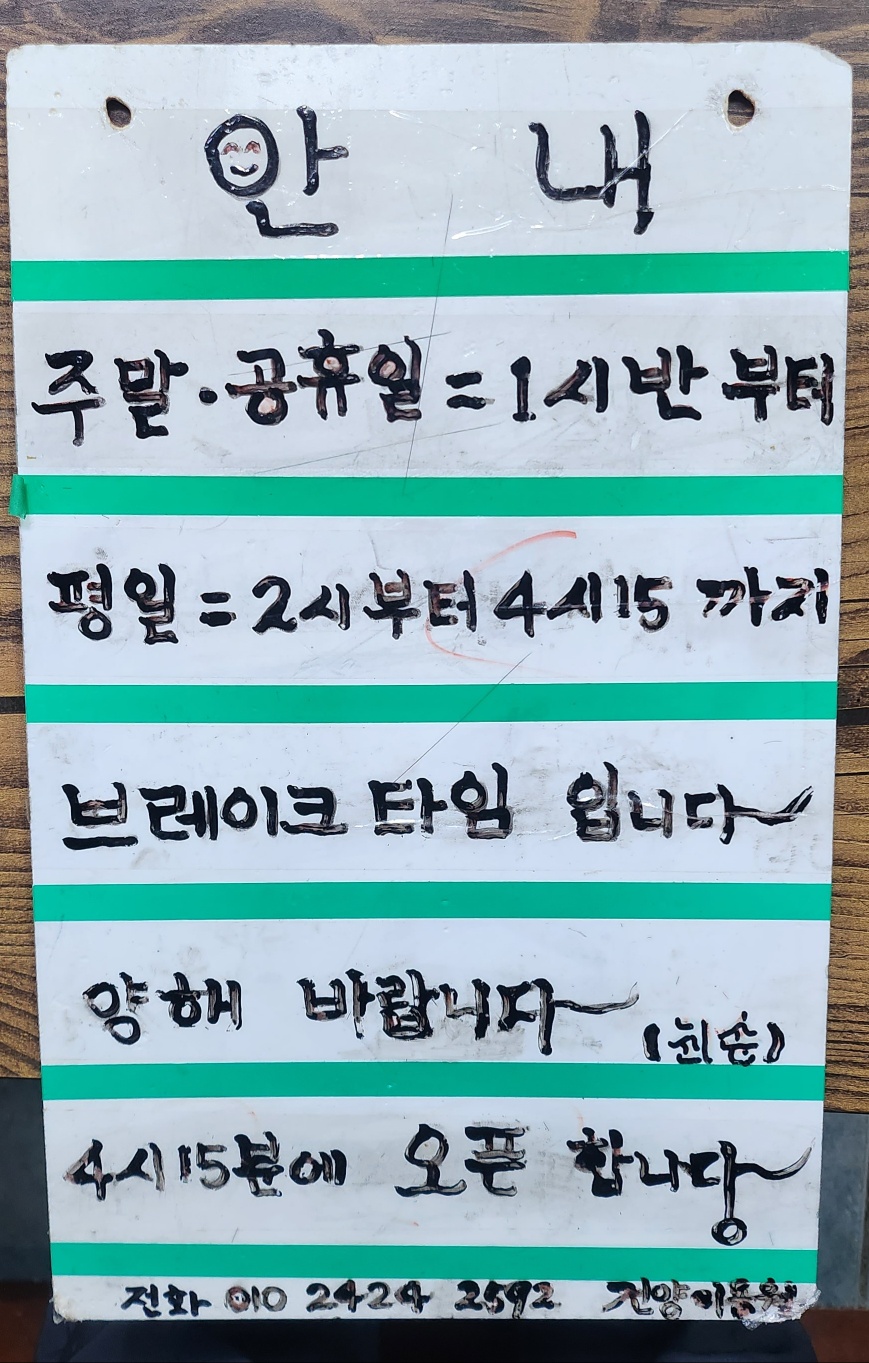 안 내
주말·공휴일=1시반부터
평일=2시부터 4시15 까지
브레이크 타임 입니다~
양해 바랍니다~
(죄송)
4시15분에 오픈 합니당~
전화 010 2424 2592